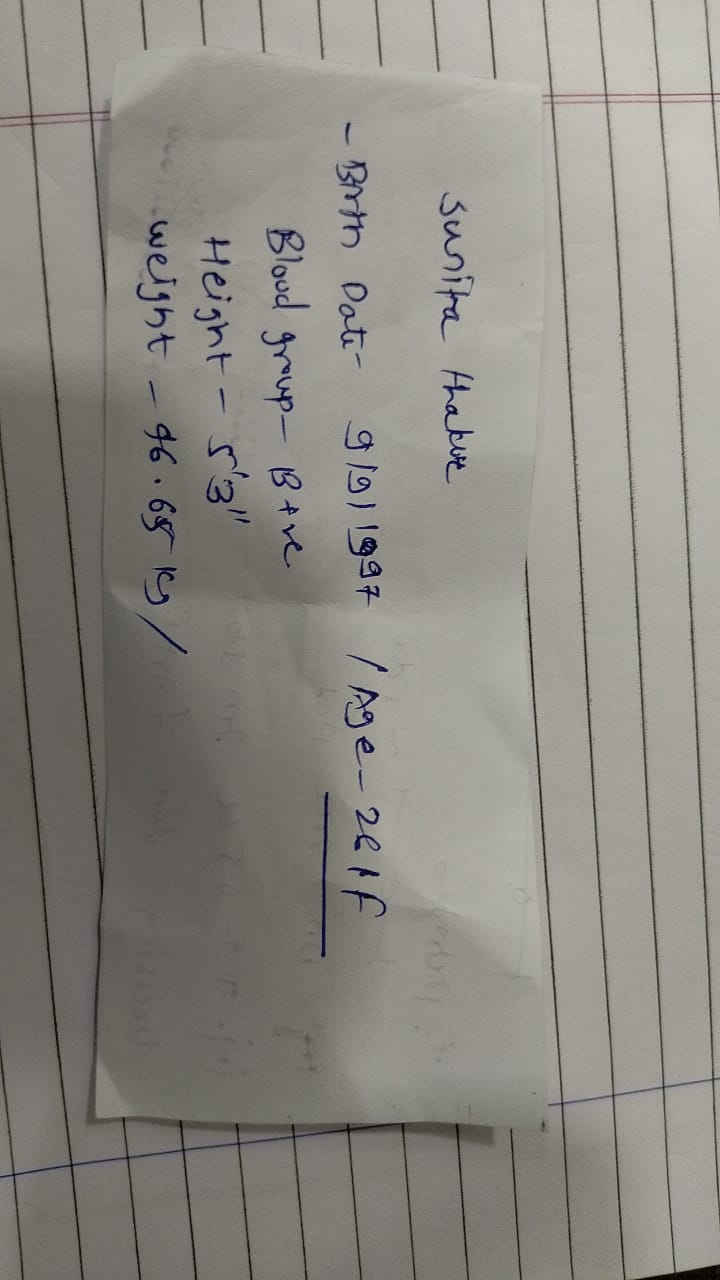 Sunita thakre
- Birth Date- 9/9/1997 / Age- 26/F
Blood group- B+ve
Height - 5'3"
weight - 46.65 kg/